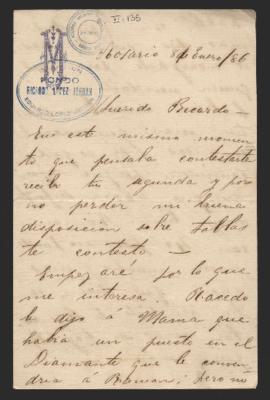 V-135
FONDO
Rosario 8 Enero/86
Querido Ricardo -
En este mismo momen
to que pensaba contestarte
recibo tu segunda y por
no perder mi buena
disposicion sobre tablas
te contesto -
Empezaré por lo que
me interesa. Racedo
le dijo á Mama que
habia un puesto en el
Diamante que le conven
dria á Roman; pero no